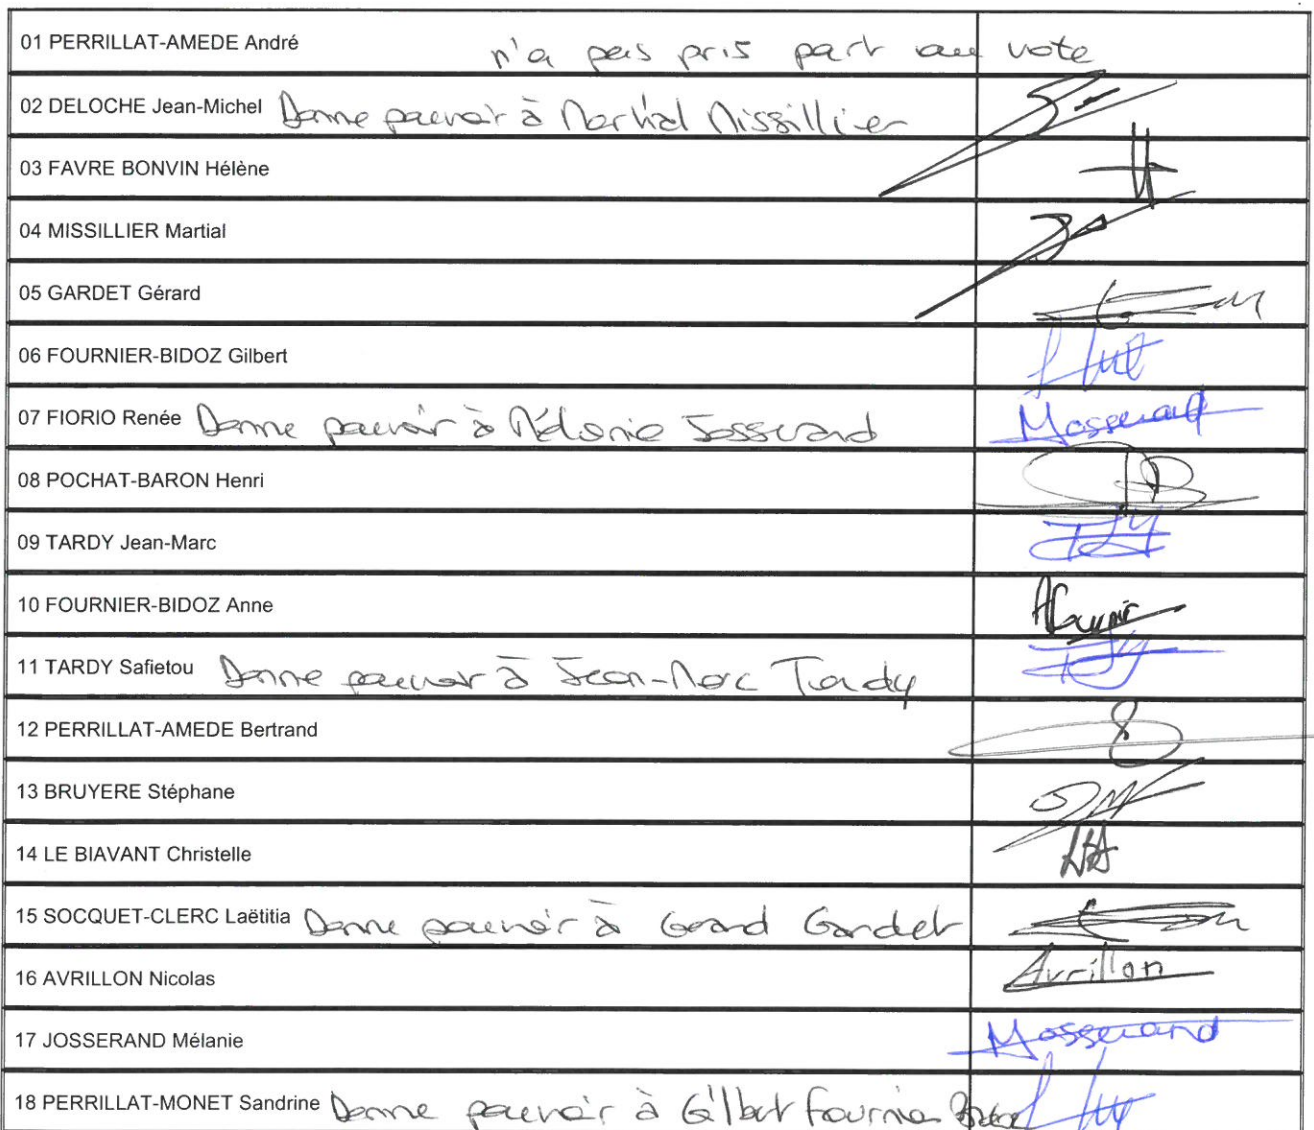 01 PERRILLAT-AMEDE André n'a pas pris part au vote
02 DELOCHE Jean-Michel Donne pouvoir à Martial Missillier
03 FAVRE BONVIN Hélène
04 MISSILLIER Martial
05 GARDET Gérard
06 FOURNIER-BIDOZ Gilbert
07 FIORIO Renée Donne pouvoir à Mélanie Josserand Mosserand
08 POCHAT-BARON Henri
09 TARDY Jean-Marc
10 FOURNIER-BIDOZ Anne
11 TARDY Safietou Donne pouvoir à Jean-Marc Tardy
12 PERRILLAT-AMEDE Bertrand
13 BRUYERE Stéphane
14 LE BIAVANT Christelle
15 SOCQUET-CLERC Laëtitia Donne pouvoir à Gérard Gardet
16 AVRILLON Nicolas Avrillon
17 JOSSERAND Mélanie Mosserand
18 PERRILLAT-MONET Sandrine Donne pouvoir à Gilbert Fournier Bidoz